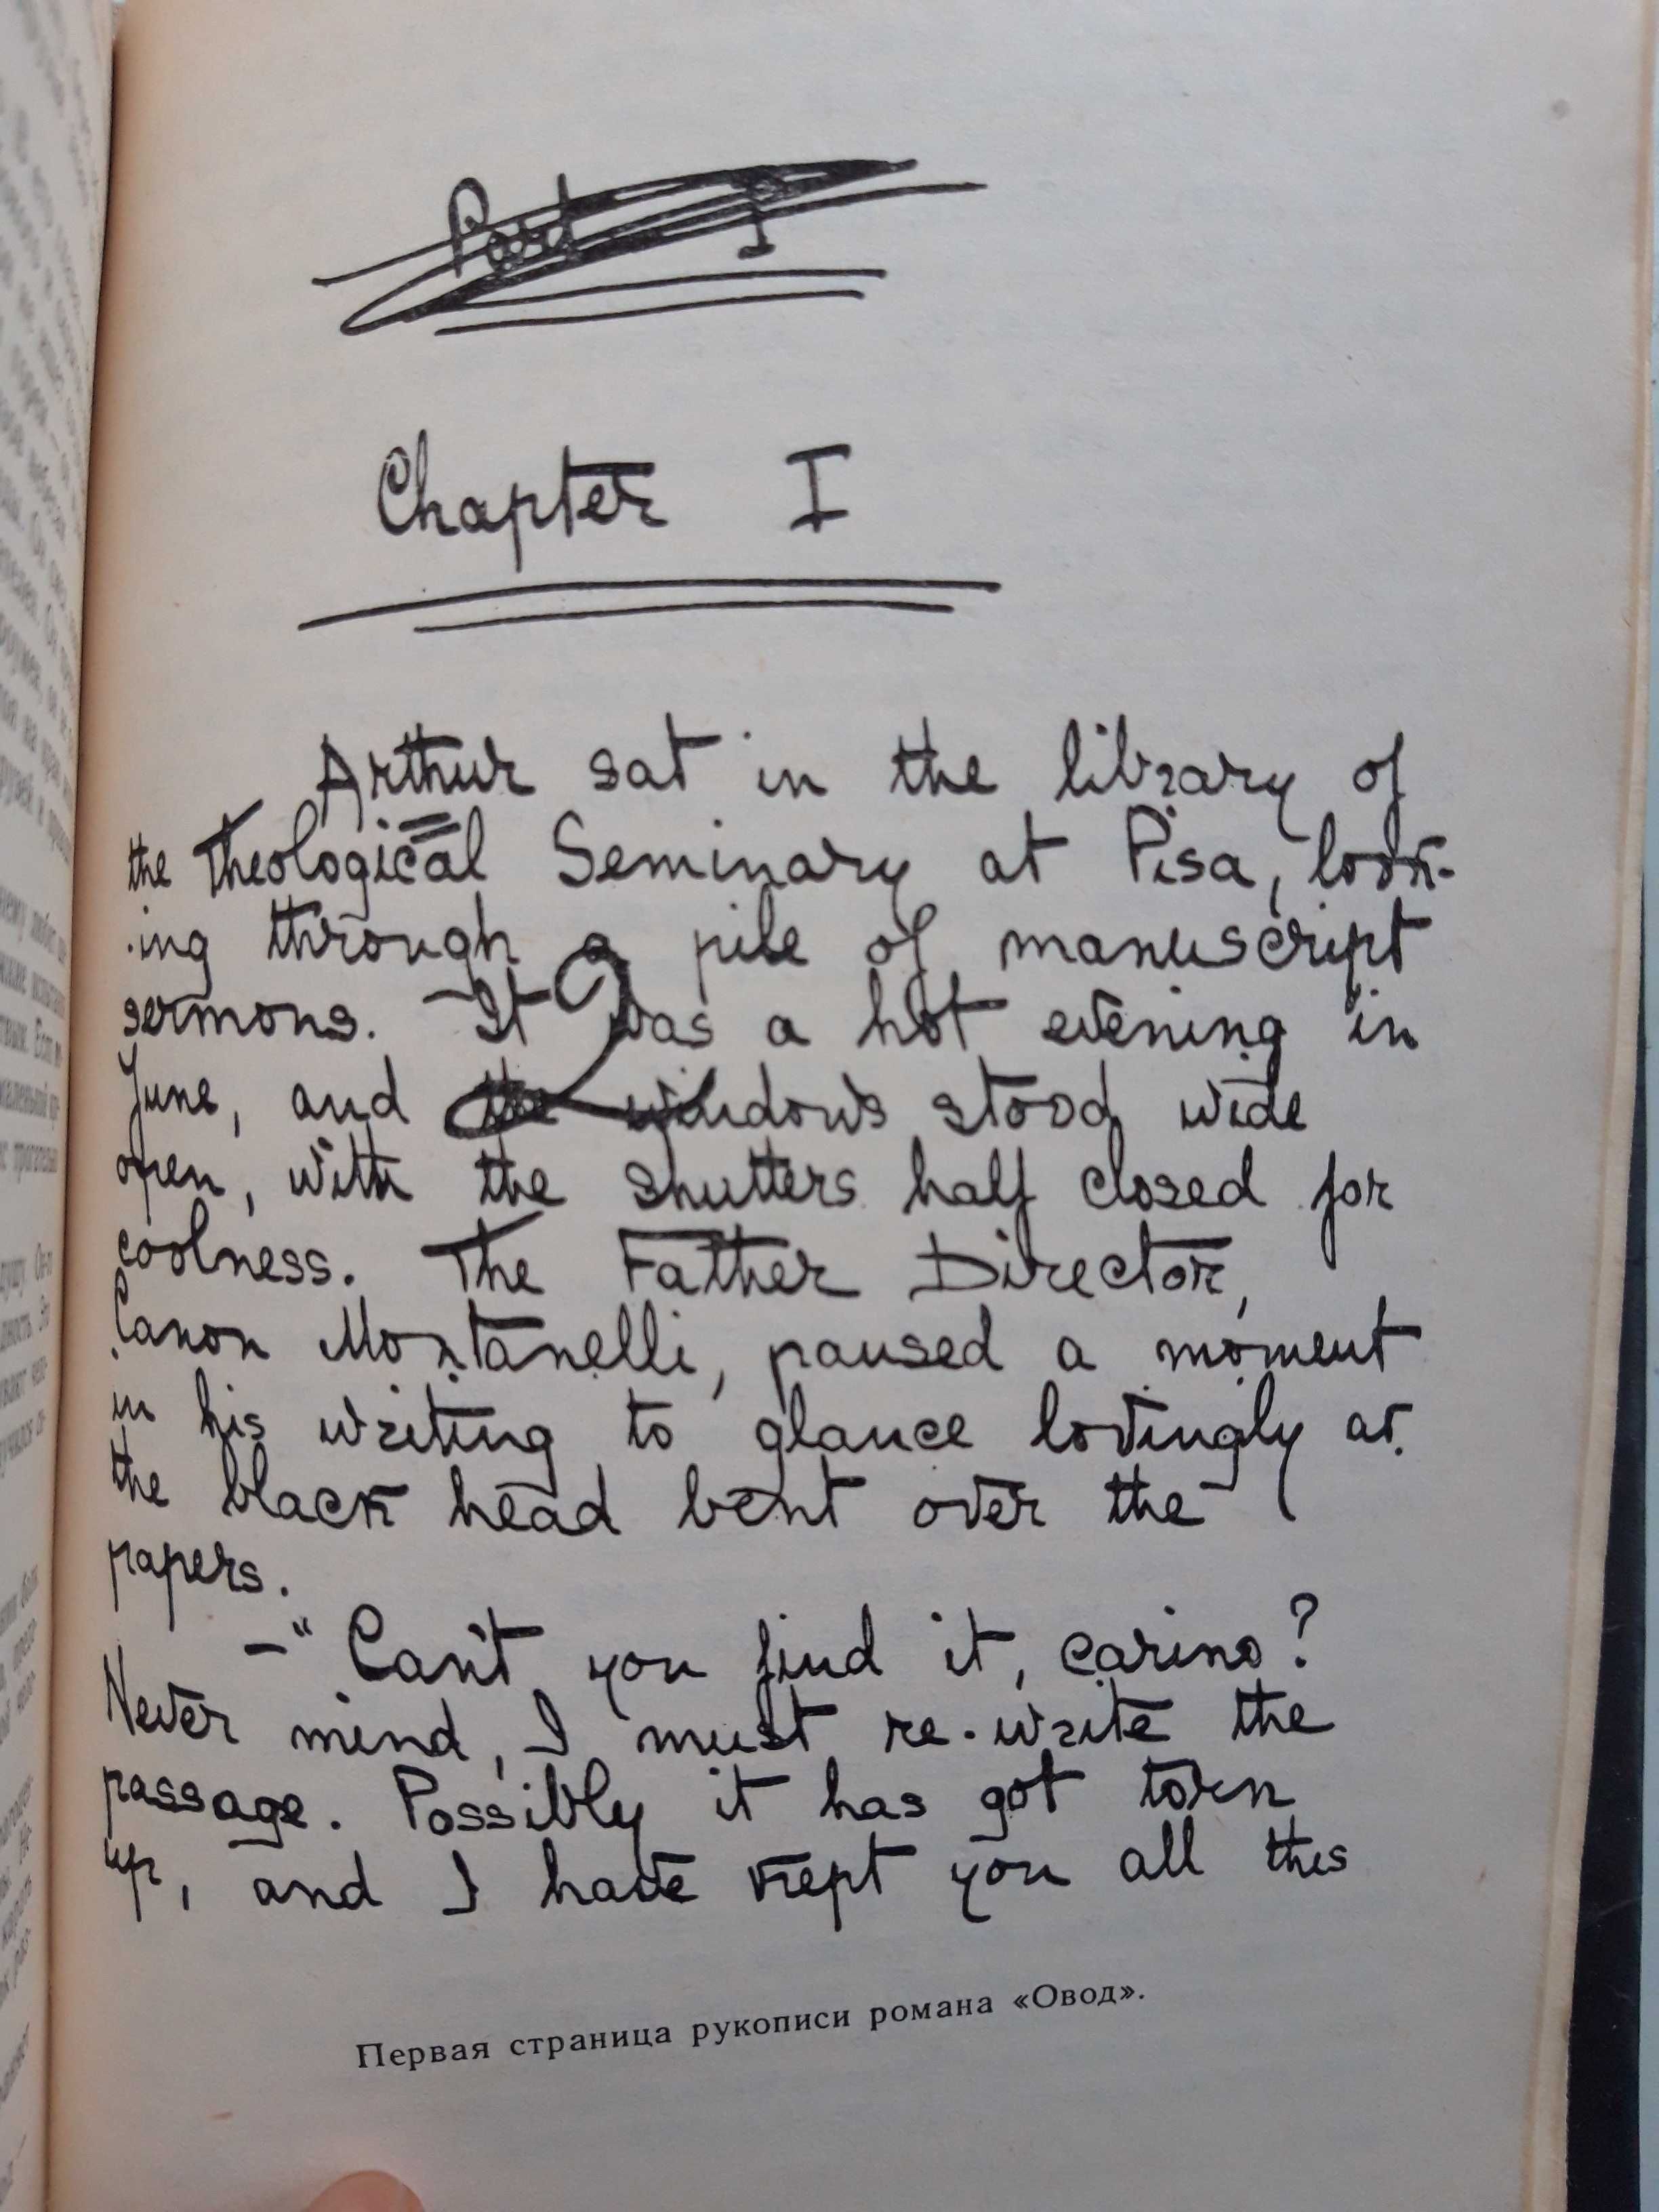 Part I
Chapter I
Arthur sat in the library of
the Theological Seminary at Pisa, look-
ing through a pile of manuscript
sermons. It was a hot evening in
June, and the windows stood wide
open, with the shutters half closed for
coolness. The Father Director,
Canon Montanelli, paused a moment
in his writing to glance lovingly at
the black head bent over the
papers.
–"Can't you find it, carino?
Never mind, I must re-write the
passage. Possibly it has got torn
up, and I have kept you all this
Первая страница рукописи романа «Овод».